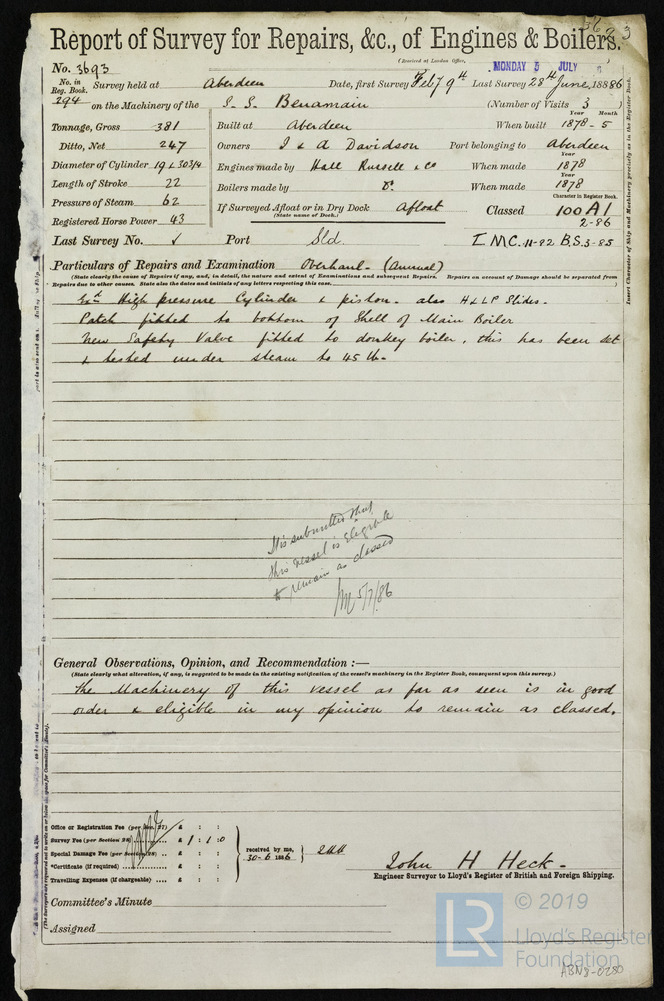 Report of Survey for Repairs, &c., of Engines & Boilers.
(Received at London Office,
MONDAY 5 JULY
No. 3693
No. in Reg. Book. Survey held at Aberdeen Date, first Survey Feby 9th Last Survey 28th June, 1886
294 on the Machinery of the S. S. Benamain (Number of Visits 3
Tonnage, Gross 381
Ditto, Net 247
Diameter of Cylinder 19 & 30 3/4
Length of Stroke 22
Pressure of Steam 62
Registered Horse Power 43
Built at Aberdeen When built 1878 - 5
Year Month
Owners J & A Davidson Port belonging to Aberdeen
Engines made by Hall Russell & Co When made 1878
Year
Boilers made by Do When made 1878
Year
If Surveyed Afloat or in Dry Dock Afloat Classed 100 A1
(State name of Dock.)
Character in Register Book.
2-86
Last Survey No. ✓ Port Sld. I M C. 11-82 B.S. 3-85
Particulars of Repairs and Examination Overhaul - (Annual)
(State clearly the cause of Repairs if any, and, in detail, the nature and extent of Examinations and subsequent Repairs. Repairs on account of Damage should be separated from
Repairs due to other causes. State also the dates and initials of any letters respecting this case. )
Exd High pressure Cylinder & piston. also H & LP Slides.
Patch fitted to bottom of Shell of Main Boiler
New Safety Valve fitted to donkey boiler, this has been set
& tested under steam to 45 lb.
It is submitted that
this vessel is eligible
to remain as classed
5/7/86
General Observations, Opinion, and Recommendation :—
(State clearly what alteration, if any, is suggested to be made in the existing notification of the vessel's machinery in the Register Book, consequent upon this survey.)
The Machinery of this vessel as far as seen is in good
order & eligible in my opinion to remain as classed.
Office or Registration Fee (per Sec. 27) £ : :
Survey Fee (per Section 28) £ 1 : 1 : 0
Special Damage Fee (per Section 28) £ : :
*Certificate (if required) £ : :
Travelling Expenses (if chargeable) £ : :
received by me,
30-6 1886
John H Heck -
Engineer Surveyor to Lloyd's Register of British and Foreign Shipping.
Committee's Minute
Assigned
Insert Character of Ship and Machinery precisely as in the Register Book.
LR
© 2019
Lloyd's Register
Foundation
ABN8-0280